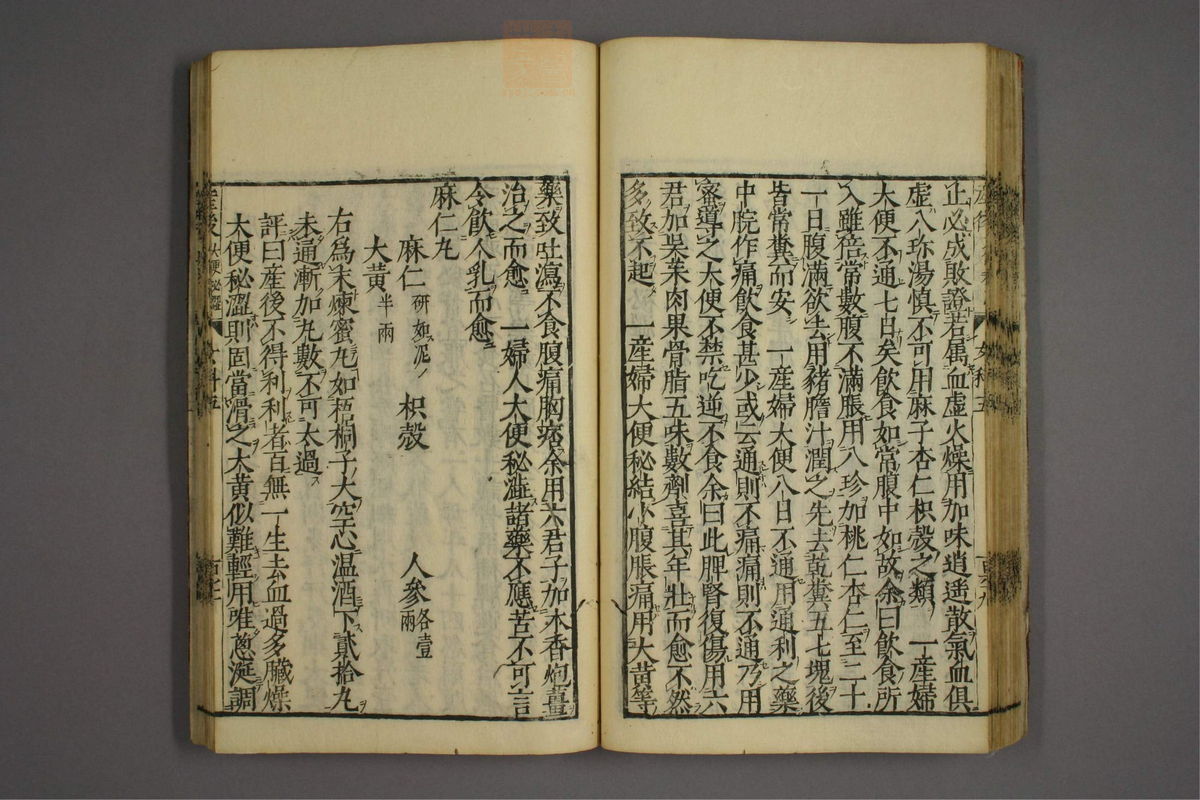 止必成敗證若属血虛火燥用加味逍遥散氣血俱
虛八珎湯慎不可用麻子杏仁枳殼之類　一産婦
大便不通七日矣飲食如常腹中如故余曰飲食所
入雖倍常數腹不滿脹用八珍加桃仁杏仁至二十
一日腹滿欲去用豬膽汁潤之先去乾糞五七塊後
皆常糞而安　一産婦大便八日不通用通利之藥
中脘作痛飲食甚少或云通則不痛痛則不通乃用
蜜導之大便不禁吃逆不食余曰此脾腎復傷用六
君加吴茱肉果骨脂五味數劑喜其年壯而愈不然
多致不起　一産婦大便秘結小腹脹痛用大黄等
藥致吐瀉不食腹痛胸痞余用六君子加木香炮薑
治之而愈　一婦人大便秘澁諸藥不應苦不可言
令飲人乳而愈
麻仁丸
麻仁研如泥　枳殼　人參各壹兩
大黄半兩
右爲末煉蜜丸如梧桐子大空心温酒下貳拾丸
未通漸加丸數不可太過
評曰産後不得利利者百無一生去血過多臟燥
大便秘澀則固當滑之大黄似難輕用唯葱涎調
産後 大便秘澀 女科五